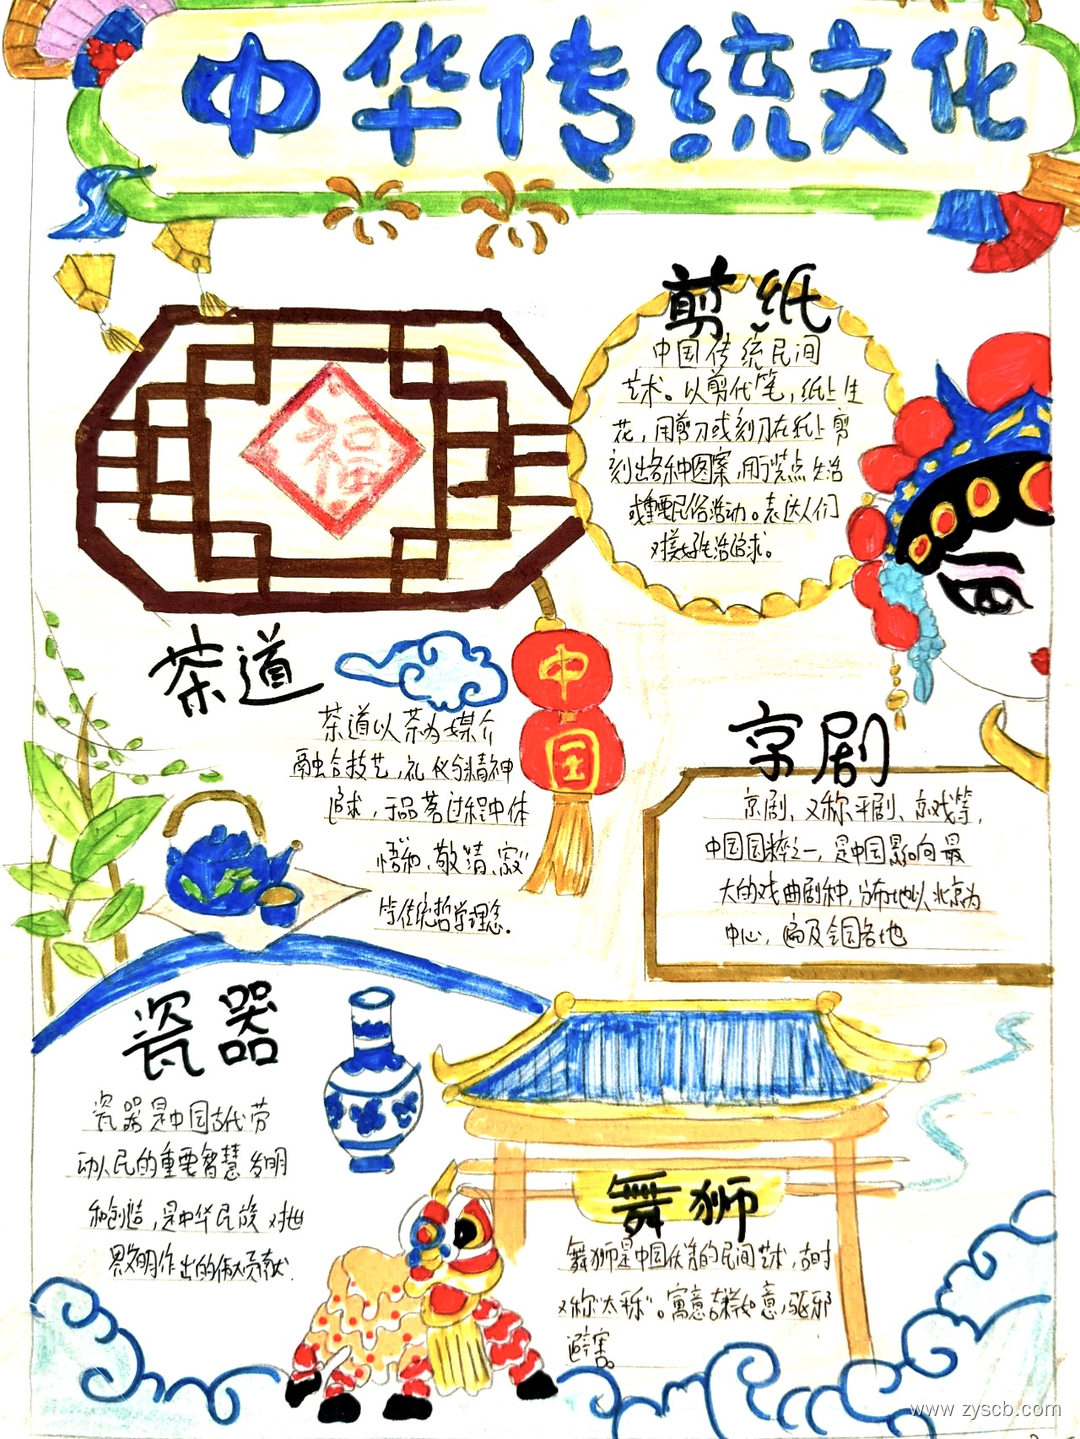 中华传统文化
福
剪纸
中国传统民间
艺术。以剪代笔，纸上生
花，用剪刀或刻刀在纸上剪
刻出各种图案，用于装点生活
或重要民俗活动。表达人们
对美好生活追求。
茶道
茶道以茶为媒介
融合技艺，礼仪与精神
追求，于品茗过程中体
悟和、敬、清、寂
等传统哲学理念.
中
国
京剧
京剧、又称平剧、京戏等，
中国国粹之一，是中国影响最
大的戏曲剧种，分布地以北京为
中心，遍及全国各地
瓷器
瓷器是中国古代劳
动人民的重要智慧发明
和创造，是中华民族对世
界文明作出的伟大贡献.
舞狮
舞狮是中国优秀的民间艺术，古时
又称“太平乐”。寓意吉祥如意，驱邪
避害。
www.zyscb.com